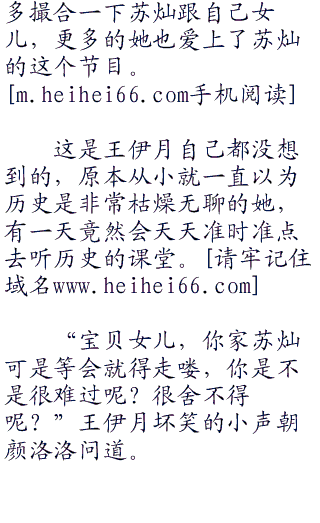 多撮合一下苏灿跟自己女
儿，更多的她也爱上了苏灿
的这个节目。
[m.heihei66.com手机阅读]
这是王伊月自己都没想
到的，原本从小就一直以为
历史是非常枯燥无聊的她，
有一天竟然会天天准时准点
去听历史的课堂。[请牢记住
域名www.heihei66.com]
“宝贝女儿，你家苏灿
可是等会就得走喽，你是不
是很难过呢？很舍不得
呢？”王伊月坏笑的小声朝
颜洛洛问道。